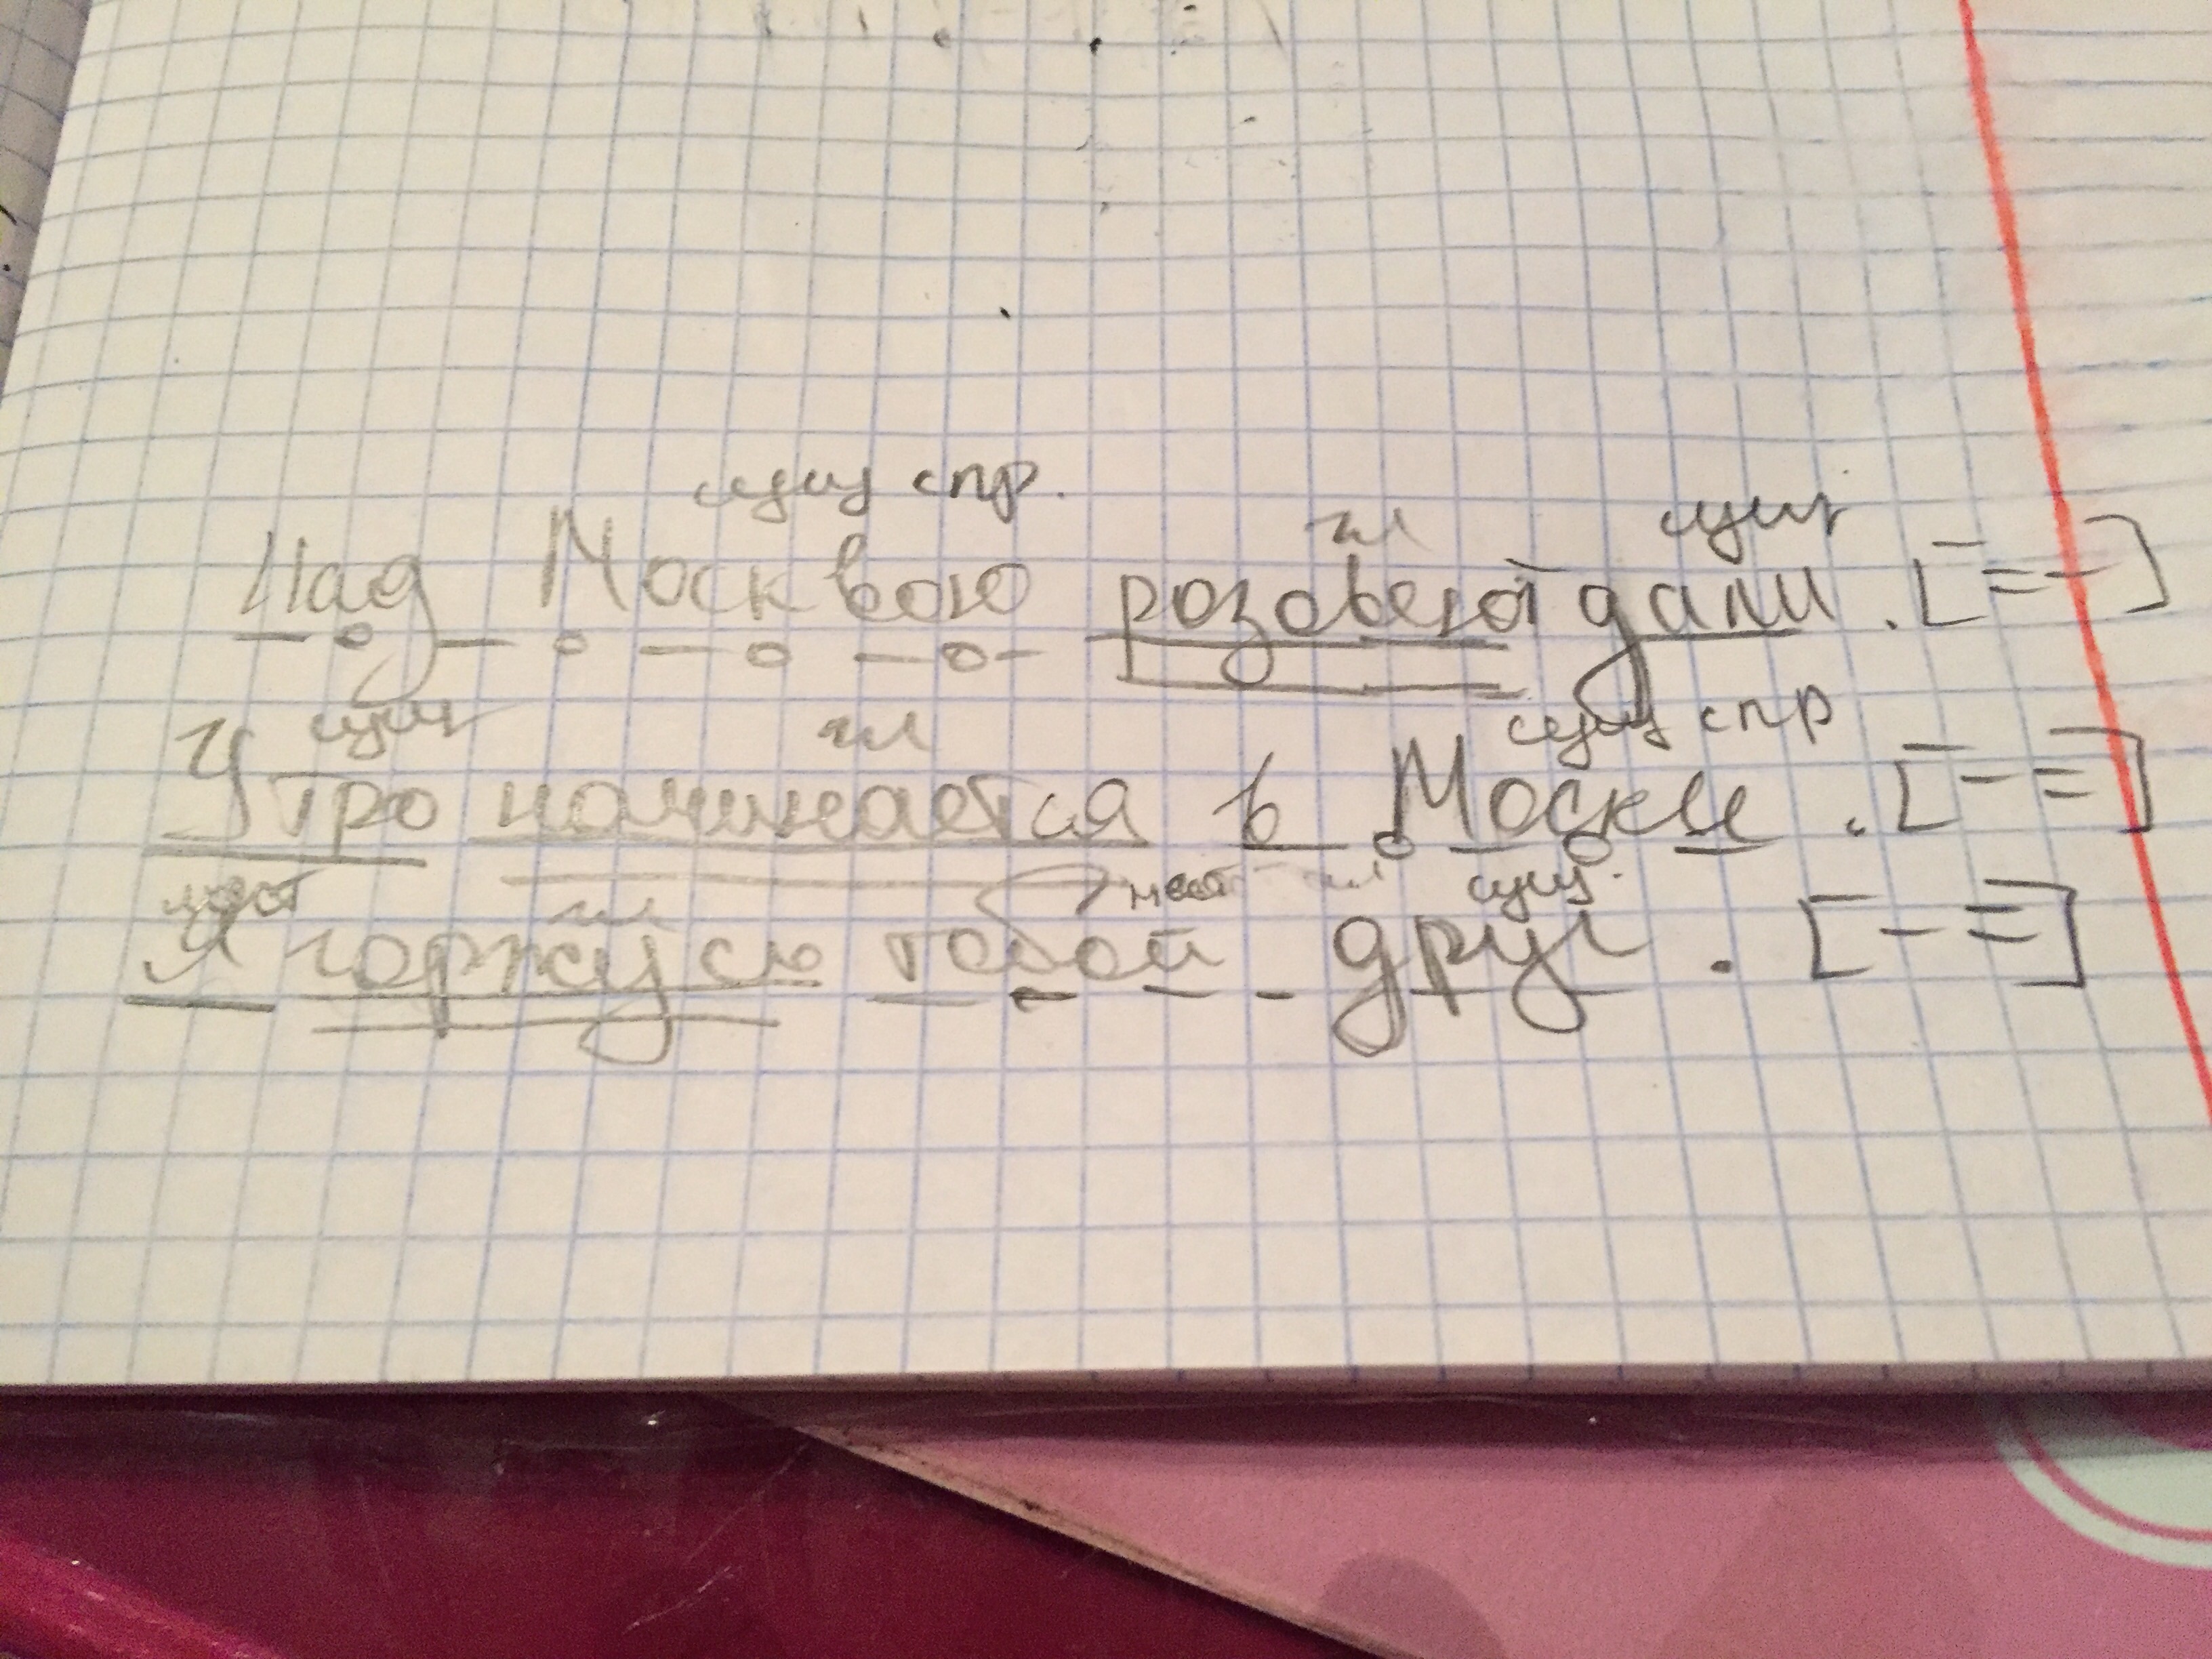 сущ спр. гл сущ
Над Москвою розовеют дали. [= -]
сущ гл сущ спр
Утро начинается в Москве. [- =]
мест гл мест гл сущ.
Я горжусь тобой друг. [- =]